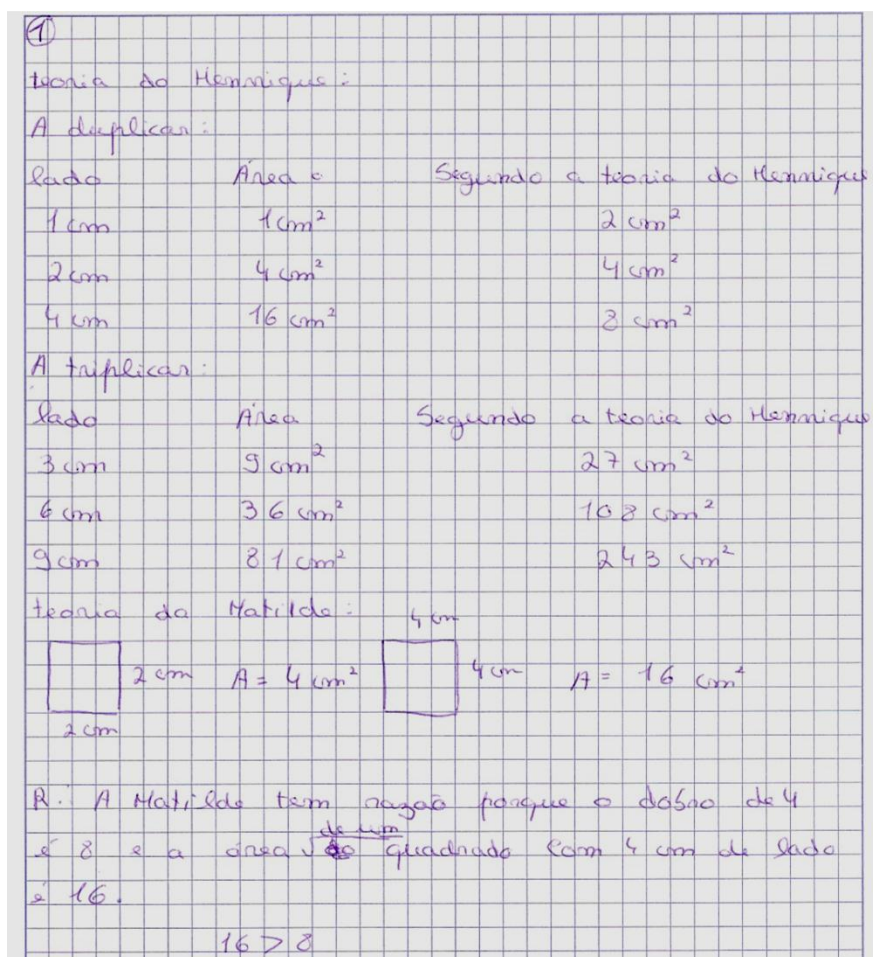 1
teoria do Henrique:
A duplicar:
lado Área Segundo a teoria do Henrique
1 cm 1 cm² 2 cm²
2 cm 4 cm² 4 cm²
4 cm 16 cm² 8 cm²
A triplicar:
lado Área Segundo a teoria do Henrique
3 cm 9 cm² 27 cm²
6 cm 36 cm² 108 cm²
9 cm 81 cm² 243 cm²
teoria da Matilde:
4 cm
2 cm A = 4 cm² 4 cm A = 16 cm²
2 cm
R.: A Matilde tem razão porque o dobro de 4
é 8 e a área de um quadrado com 4 cm de lado
é 16.
16 > 8